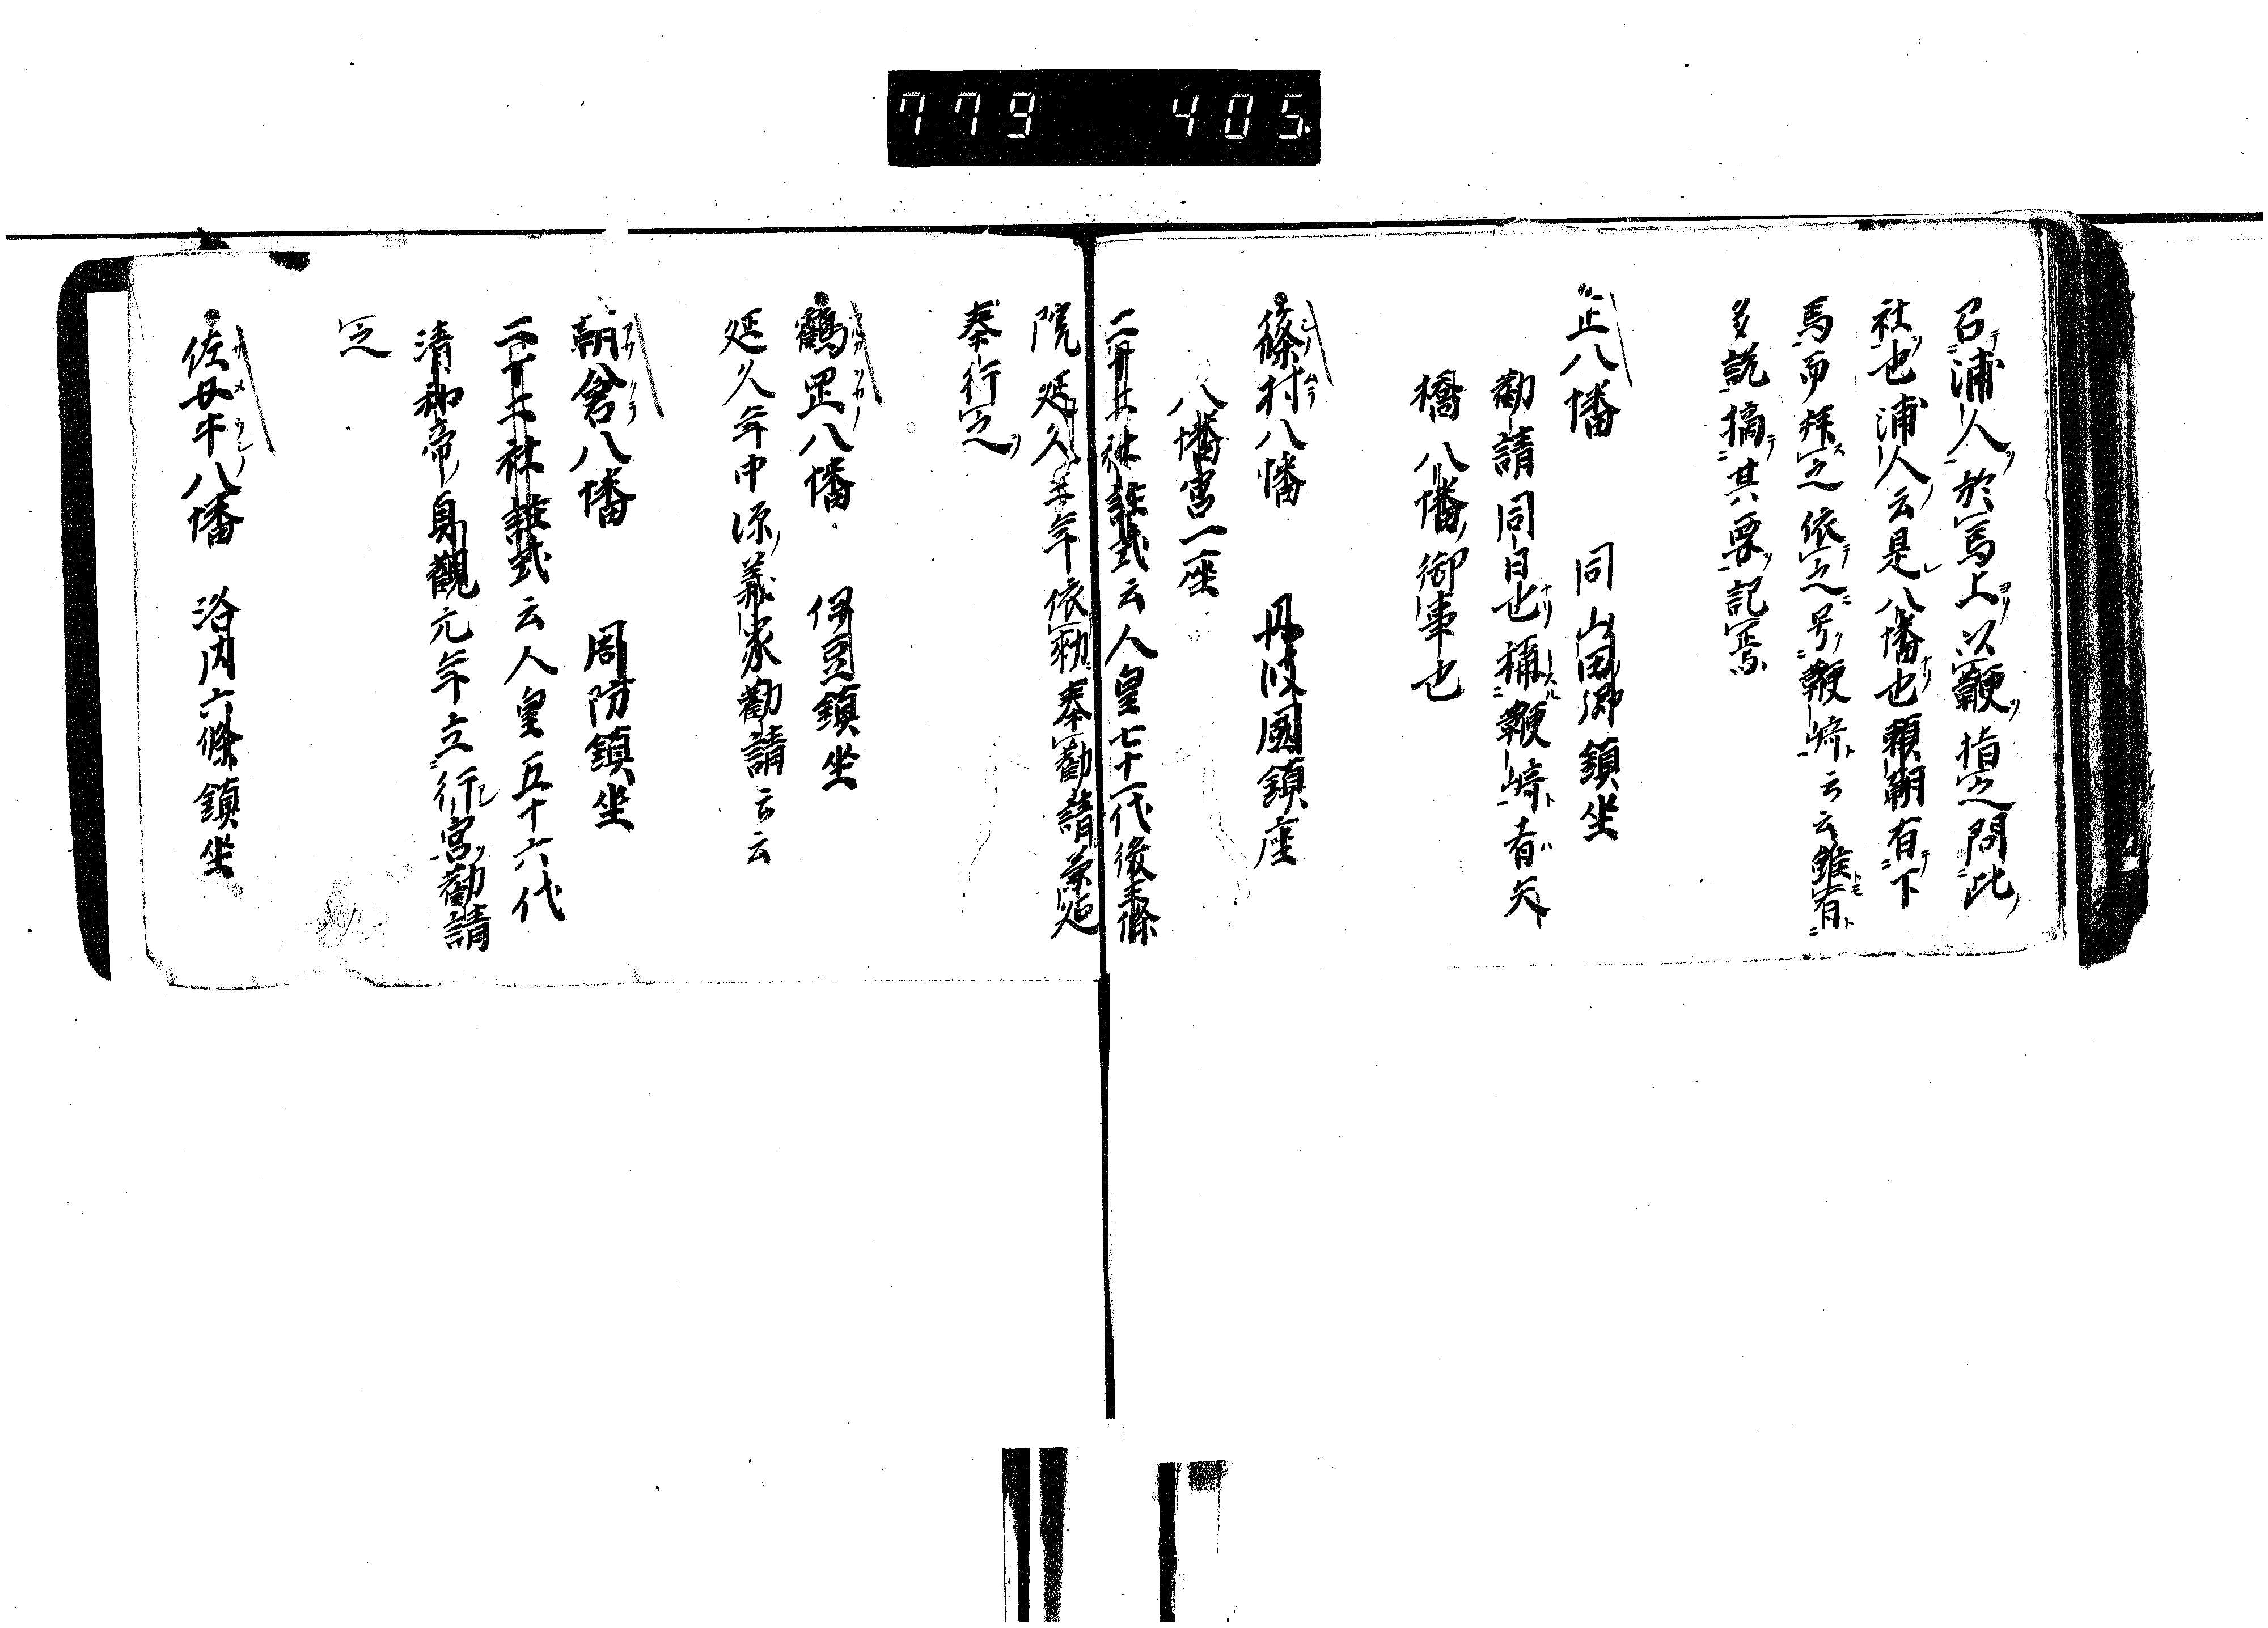 779 405
召浦人於馬上以鞭指之問此
社也浦人云是八幡也頼朝有下
馬而拜之依之号鞭崎云云雖有
多説摘其要記焉
正八幡 同山田郷鎮坐
勸請同日也稱鞭崎者矢
橋八幡御事也
篠村八幡 丹波國鎮座
八幡宮一座
二十二社註式云人皇七十一代後三條
院延久三年依勅奉勸請
奉行之
鶴岡八幡 伊豆鎮坐
延久年中源義家勸請云云
朝倉八幡 周防鎮坐
二十二社註式云人皇五十六代
清和帝貞觀元年立行宮勸請
之
佐女牛八幡 洛内六條鎮坐